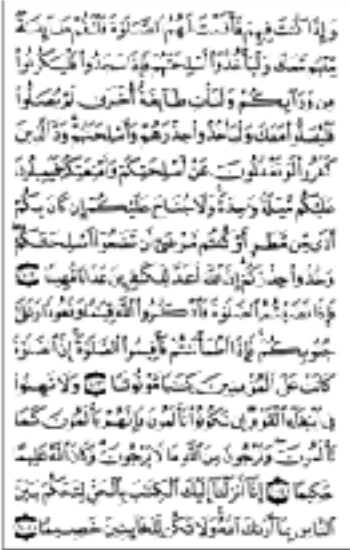 وَإِذَا كُنتَ فِيهِمْ فَأَقَمْتَ لَهُمُ ٱلصَّلَوٰةَ فَلْتَقُمْ طَآئِفَةٌ
مِّنْهُم مَّعَكَ وَلْيَأْخُذُوٓا۟ أَسْلِحَتَهُمْ فَإِذَا سَجَدُوا۟ فَلْيَكُونُوا۟
مِن وَرَآئِكُمْ وَلْتَأْتِ طَآئِفَةٌ أُخْرَىٰ لَمْ يُصَلُّوا۟
فَلْيُصَلُّوا۟ مَعَكَ وَلْيَأْخُذُوا۟ حِذْرَهُمْ وَأَسْلِحَتَهُمْ ۗ وَدَّ ٱلَّذِينَ
كَفَرُوا۟ لَوْ تَغْفُلُونَ عَنْ أَسْلِحَتِكُمْ وَأَمْتِعَتِكُمْ فَيَمِيلُونَ
عَلَيْكُم مَّيْلَةً وَٰحِدَةً ۚ وَلَا جُنَاحَ عَلَيْكُمْ إِن كَانَ بِكُمْ
أَذًى مِّن مَّطَرٍ أَوْ كُنتُم مَّرْضَىٰٓ أَن تَضَعُوٓا۟ أَسْلِحَتَكُمْ ۖ
وَخُذُوا۟ حِذْرَكُمْ ۗ إِنَّ ٱللَّهَ أَعَدَّ لِلْكَٰفِرِينَ عَذَابًا مُّهِينًا ١٠٢
فَإِذَا قَضَيْتُمُ ٱلصَّلَوٰةَ فَٱذْكُرُوا۟ ٱللَّهَ قِيَٰمًا وَقُعُودًا وَعَلَىٰ
جُنُوبِكُمْ ۚ فَإِذَا ٱطْمَأْنَنتُمْ فَأَقِيمُوا۟ ٱلصَّلَوٰةَ ۚ إِنَّ ٱلصَّلَوٰةَ
كَانَتْ عَلَى ٱلْمُؤْمِنِينَ كِتَٰبًا مَّوْقُوتًا ١٠٣ وَلَا تَهِنُوا۟
فِى ٱبْتِغَآءِ ٱلْقَوْمِ ۖ إِن تَكُونُوا۟ تَأْلَمُونَ فَإِنَّهُمْ يَأْلَمُونَ كَمَا
تَأْلَمُونَ ۖ وَتَرْجُونَ مِنَ ٱللَّهِ مَا لَا يَرْجُونَ ۗ وَكَانَ ٱللَّهُ عَلِيمًا
حَكِيمًا ١٠٤ إِنَّآ أَنزَلْنَآ إِلَيْكَ ٱلْكِتَٰبَ بِٱلْحَقِّ لِتَحْكُمَ بَيْنَ
ٱلنَّاسِ بِمَآ أَرَىٰكَ ٱللَّهُ ۚ وَلَا تَكُن لِّلْخَآئِنِينَ خَصِيمًا ١٠٥